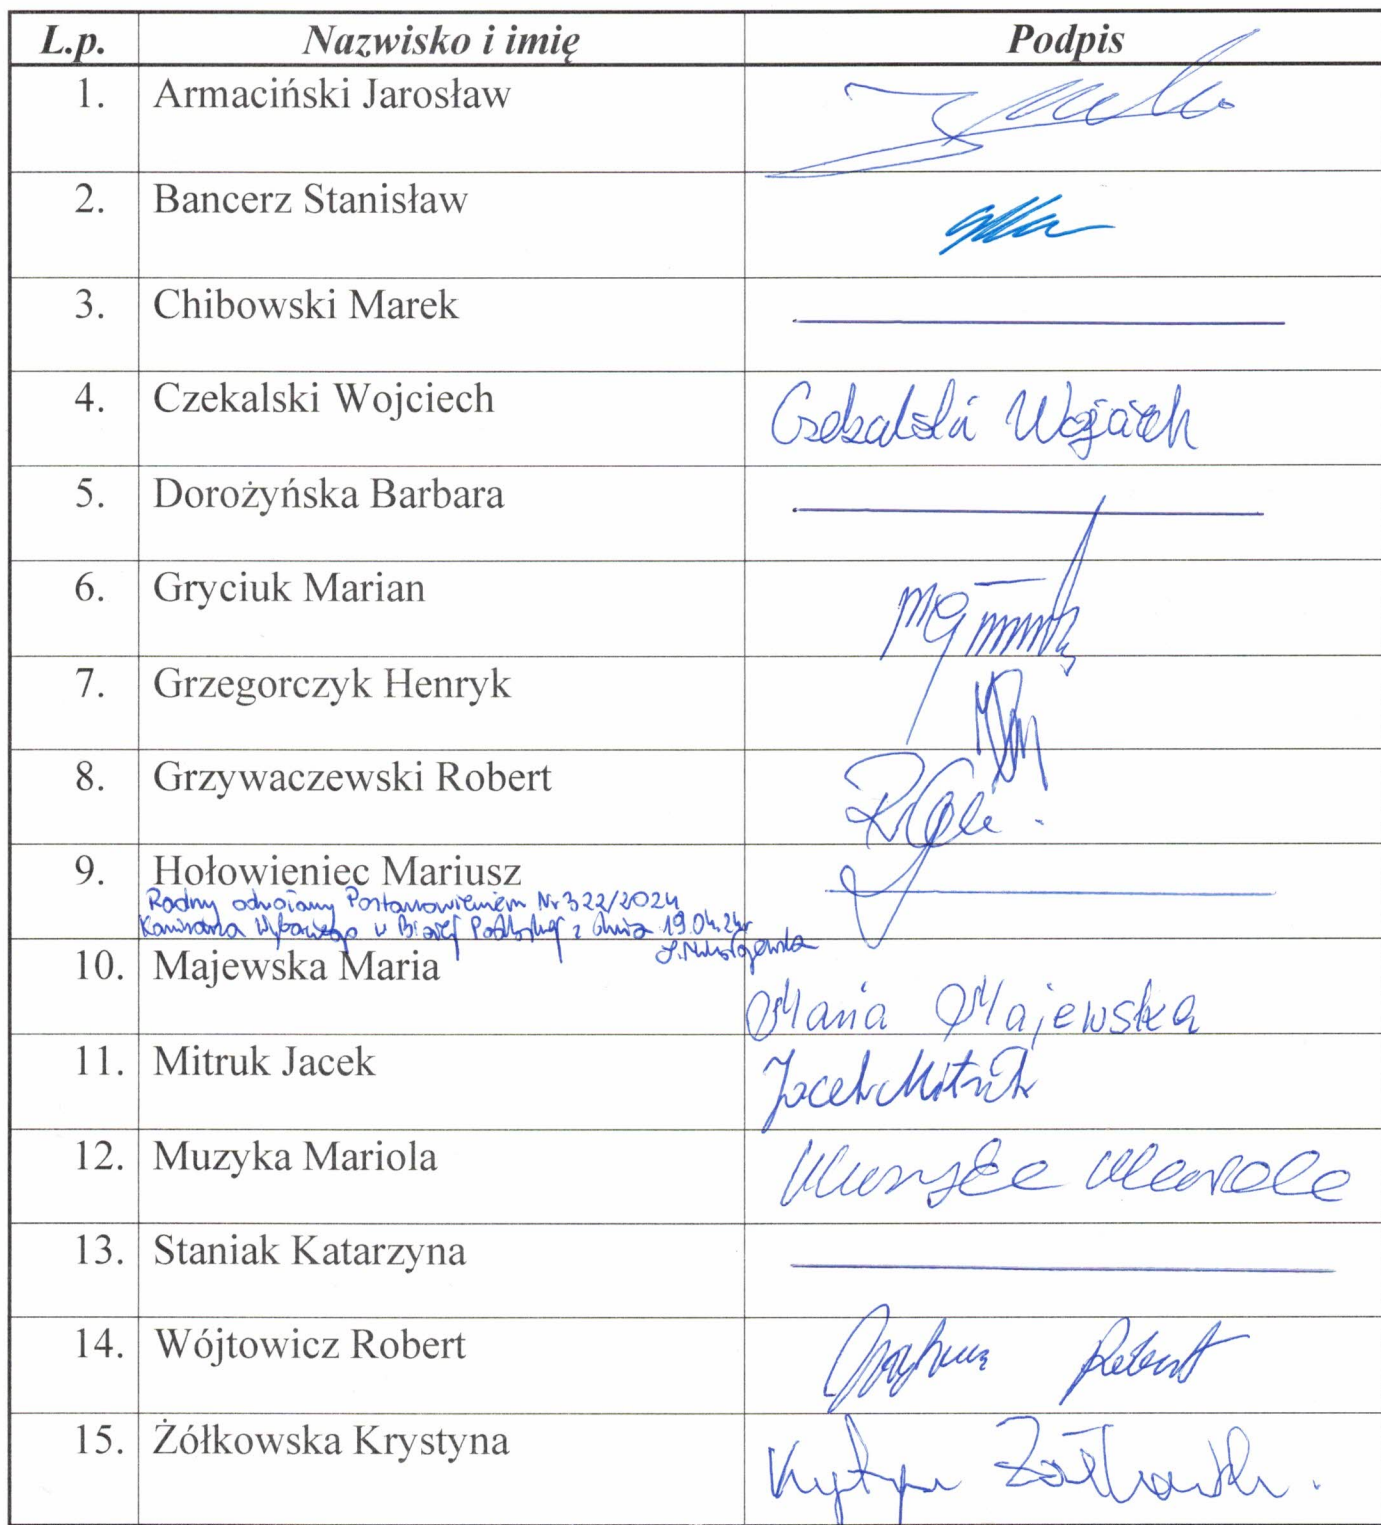 L.p. Nazwisko i imię Podpis
1. Armaciński Jarosław
2. Bancerz Stanisław
3. Chibowski Marek
4. Czekalski Wojciech Czekalski Wojciech
5. Dorożyńska Barbara
6. Gryciuk Marian
7. Grzegorczyk Henryk
8. Grzywaczewski Robert
9. Hołowieniec Mariusz
Radny odwołany Postanowieniem Nr 322/2024
Komisarza Wyborczego w Białej Podlaskiej z dnia 19.04.24r
10. Majewska Maria Maria Majewska
11. Mitruk Jacek Jacek Mitruk
12. Muzyka Mariola Muzyka Mariola
13. Staniak Katarzyna
14. Wójtowicz Robert Robert
15. Żółkowska Krystyna Krystyna Żółkowska.